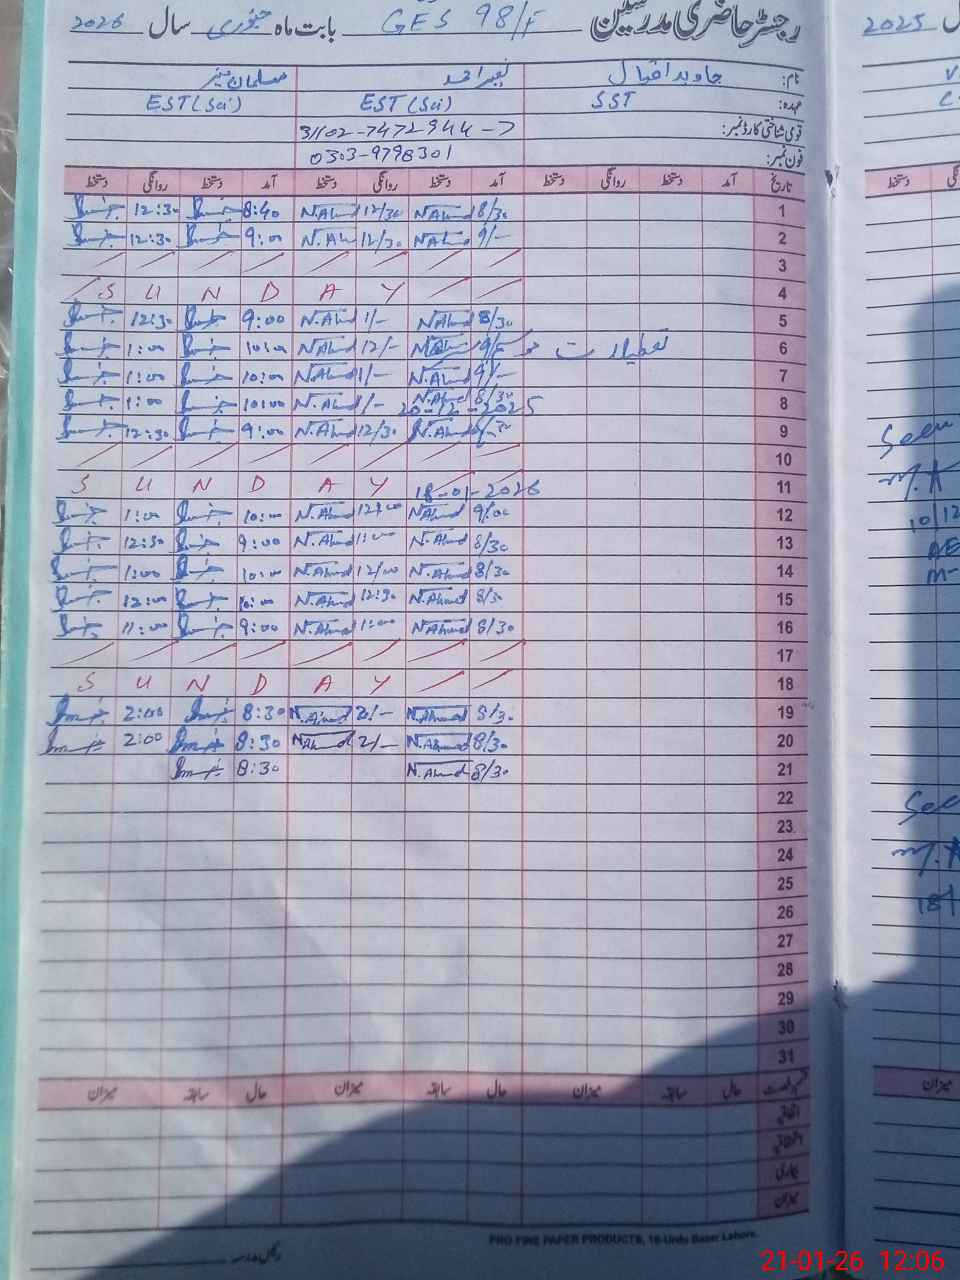 رجسٹر حاضری مدرسین GES 98/F بابت ماہ جنوری سال 2026
نام: جاوید اقبال نصیر احمد سلمان منیر
عہدہ: SST EST (Sci) EST (Sci)
قومی شناختی کارڈ نمبر: 31102-7472944-7
فون نمبر: 0303-9798301
تاریخ آمد دستخط روانگی دستخط آمد دستخط روانگی دستخط آمد دستخط روانگی دستخط
1 8/30 N.Ahmd 12/30 N.Ahmd 8:40 12:30
2 9/- N.Ahmd 12/30 N.Ahmd 9:00 12:30
3
4 S U N D A Y
5 8/30 N.Ahmd 1/- N.Ahmd 9:00 12:30
6 تعطیلات N.Ahmd 12/- N.Ahmd 10:00 1:00
7 9/- N.Ahmd 1/- N.Ahmd 10:00 1:00
8 8/30 N.Ahmd 1/- N.Ahmd 10:00 1:00
20-12-2025
9 N.Ahmd 12/30 N.Ahmd 9:00 12:30
10
11 S U N D A Y 18-01-2026
12 9:00 N.Ahmd 12:00 N.Ahmd 10:00 1:00
13 8/30 N.Ahmd 1:00 N.Ahmd 9:00 12:30
14 8/30 N.Ahmd 12/00 N.Ahmd 10:00 1:00
15 8/30 N.Ahmd 12:30 N.Ahmd 10:00 12:00
16 8/30 N.Ahmd 1:00 N.Ahmd 9:00 11:00
17
18 S U N D A Y
19 8/30 N.Ahmd 2/- N.Ahmd 8:30 2:00
20 8/30 N.Ahmd 2/- N.Ahmd 8:30 2:00
21 8/30 N.Ahmd 8:30
22
23
24
25
26
27
28
29
30
31
قسم رخصت حال سابقہ میزان حال سابقہ میزان حال سابقہ میزان
اتفاقی
بیماری
میزان
PRO FINE PAPER PRODUCTS, 16-Urdu Bazar Lahore.
2025
Seen
M.A
10/12
AE
M-
See
M.A
18/
21-01-26 12:06